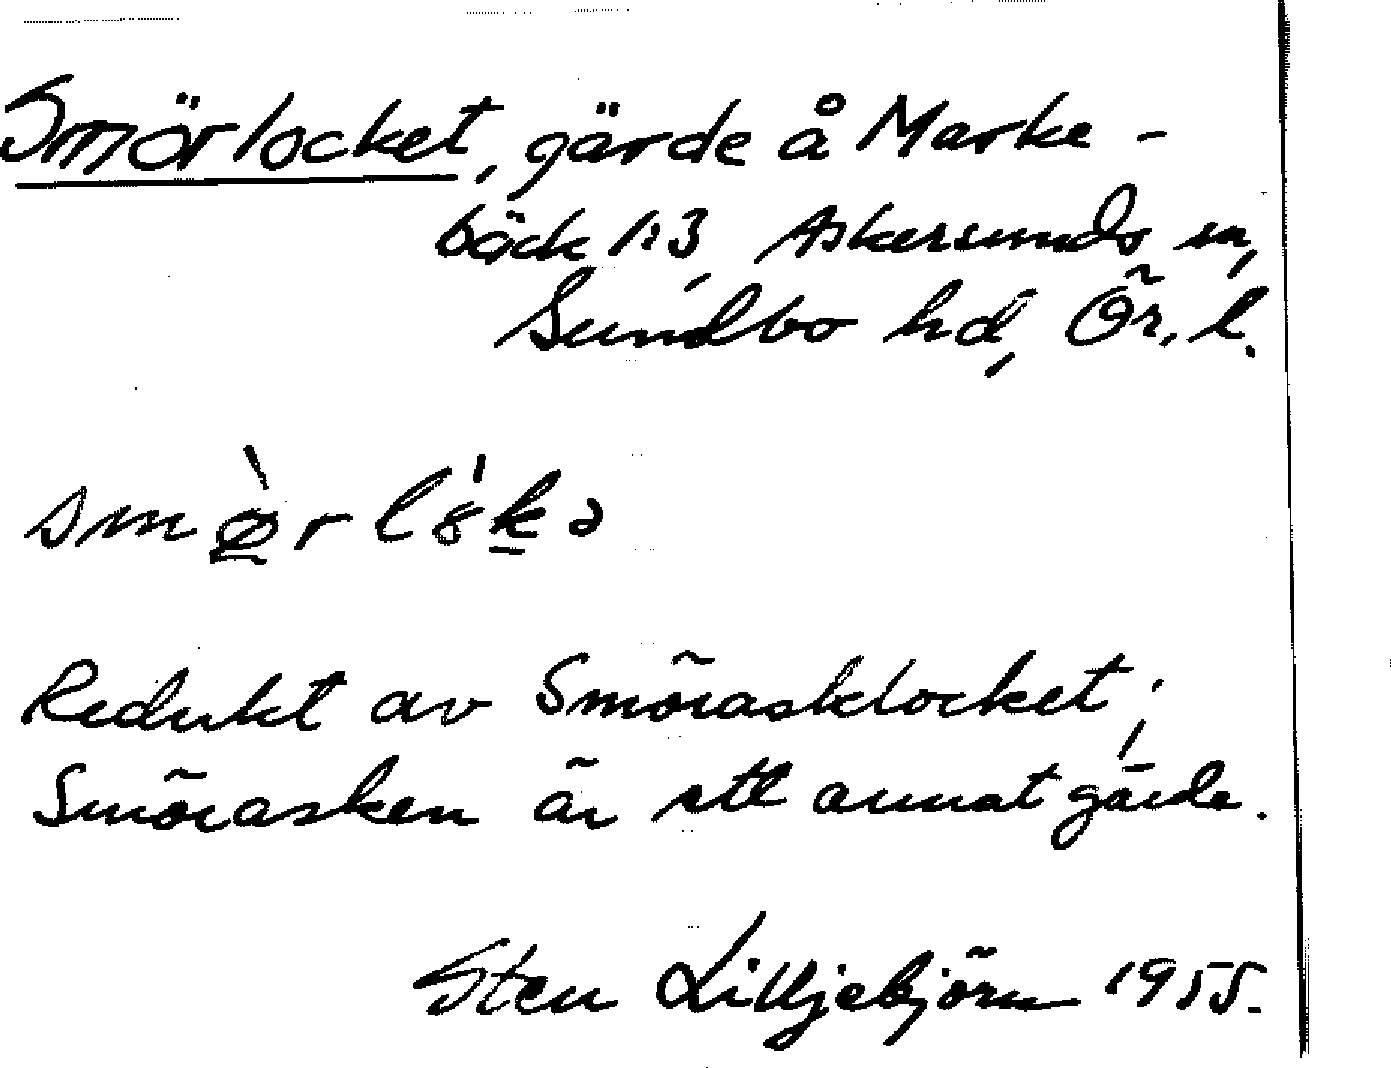 Smörlocket, gärde å Marke-
bäck 1:3, Askersunds sn,
Sundbo hd, Ör. l.
Redukt av Smörasklocket;
Smörasken är ett annat gärde.
Sten Lilljebjörn 1955.